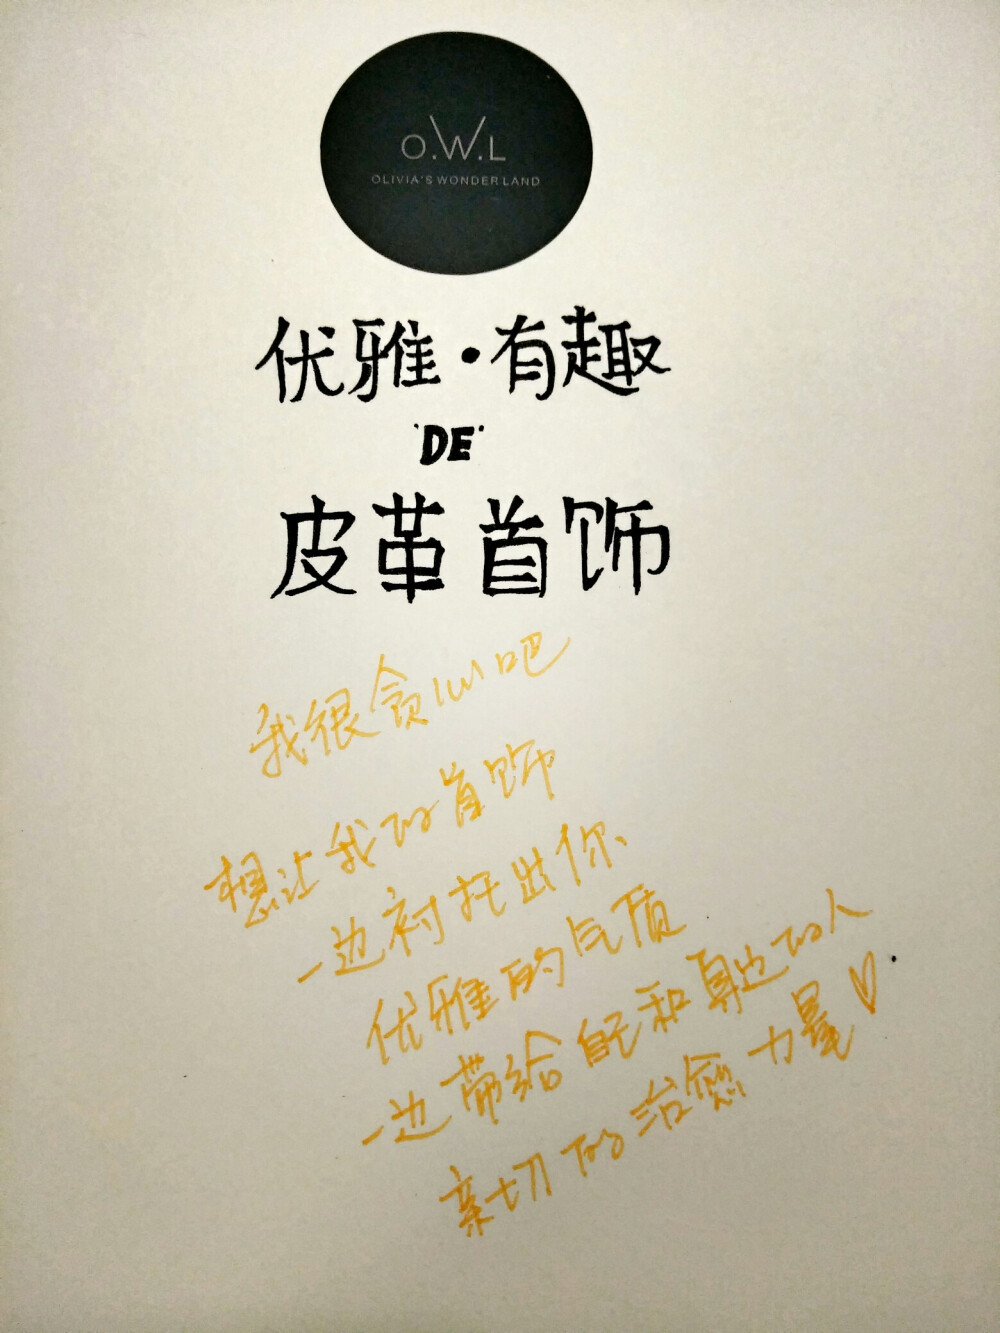 O.W.L
OLIVIA'S WONDERLAND
优雅·有趣
'DE'
皮革首饰
我很贪心吧
想让我的首饰
一边衬托出你
优雅的气质
一边带给自己和身边的人
亲切的治愈力量♡